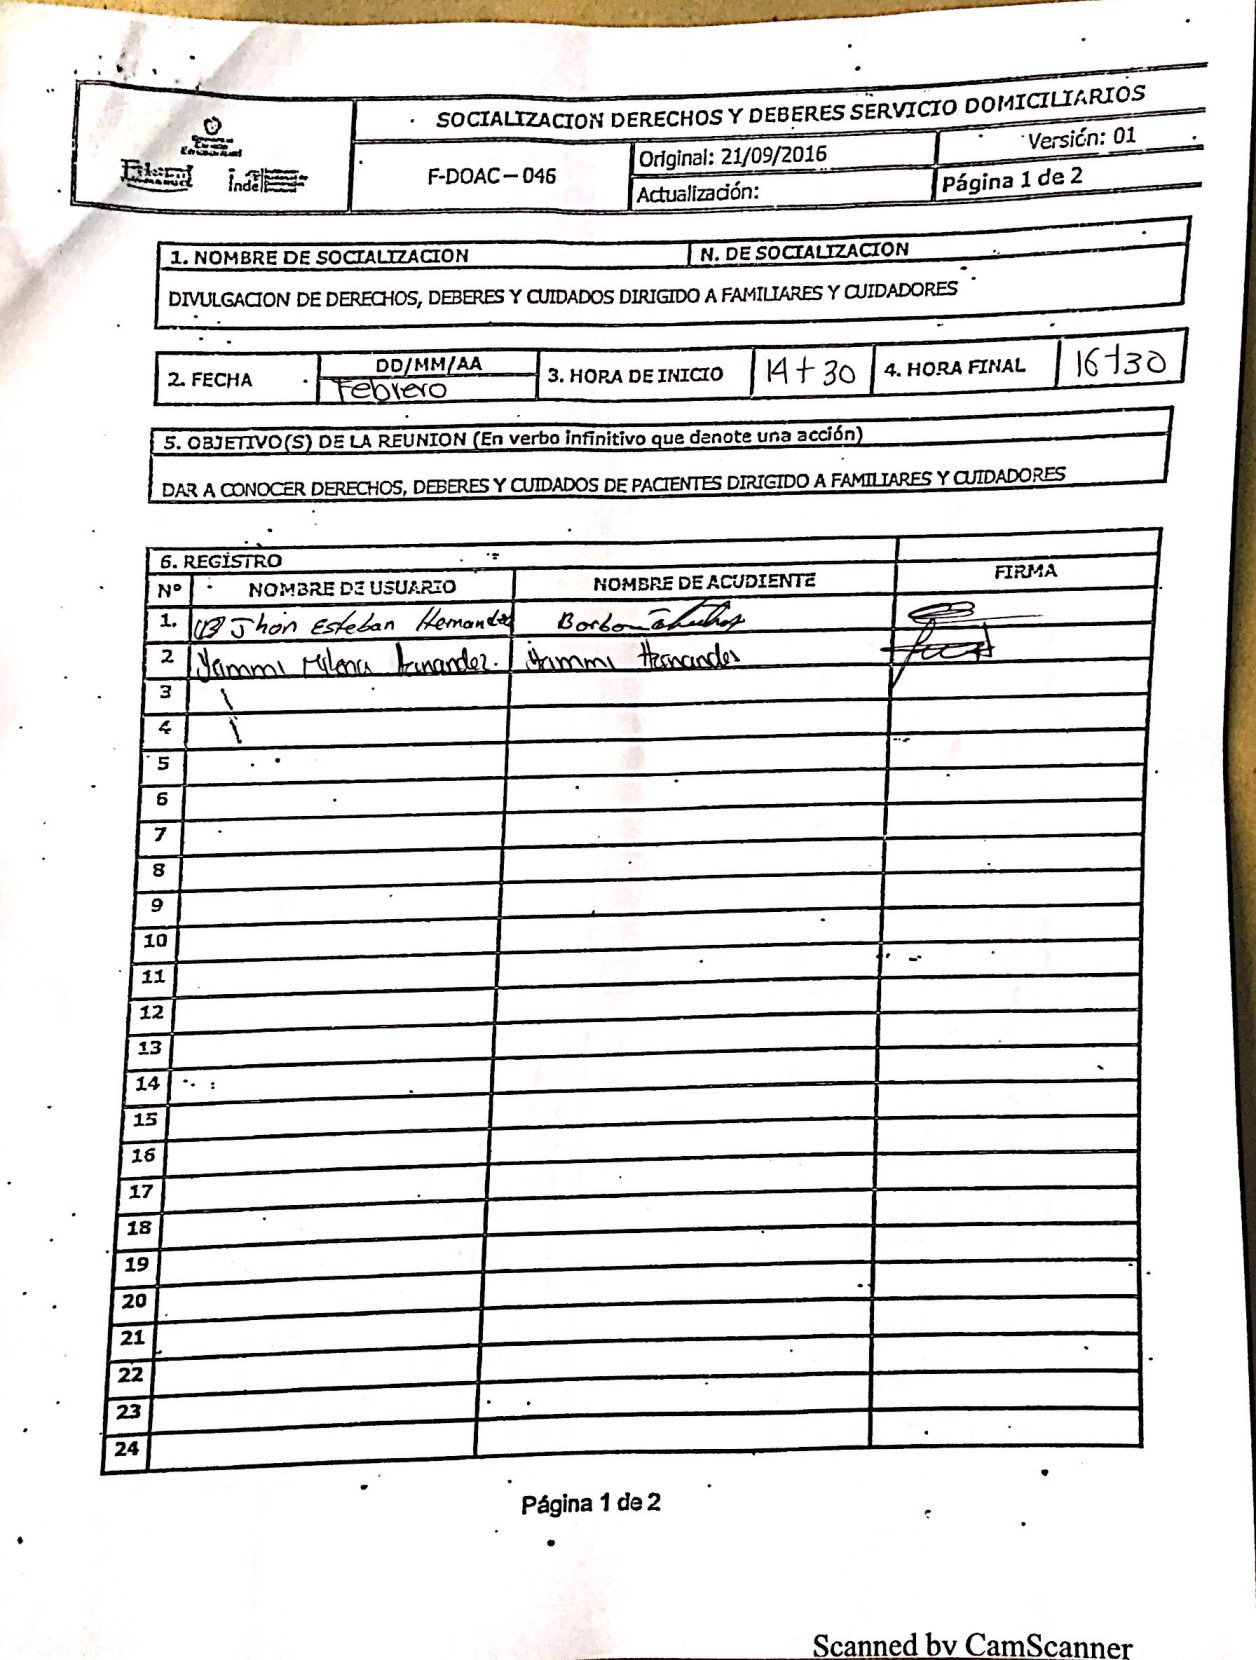 SOCIALIZACION DERECHOS Y DEBERES SERVICIO DOMICILIARIOS
F-DOAC-046
Original: 21/09/2016
Versión: 01
Actualización:
Página 1 de 2
1. NOMBRE DE SOCIALIZACION
N. DE SOCIALIZACION
DIVULGACION DE DERECHOS, DEBERES Y CUIDADOS DIRIGIDO A FAMILIARES Y CUIDADORES
2. FECHA
DD/MM/AA
Febrero
3. HORA DE INICIO
14+30
4. HORA FINAL
16+30
5. OBJETIVO(S) DE LA REUNION (En verbo infinitivo que denote una acción)
DAR A CONOCER DERECHOS, DEBERES Y CUIDADOS DE PACIENTES DIRIGIDO A FAMILIARES Y CUIDADORES
6. REGISTRO
Nº NOMBRE DE USUARIO NOMBRE DE ACUDIENTE FIRMA
1. Jhon Esteban Hernandez
2 Hernandez. Hernandes
3
4
5
6
7
8
9
10
11
12
13
14
15
16
17
18
19
20
21
22
23
24
Página 1 de 2
Scanned by CamScanner